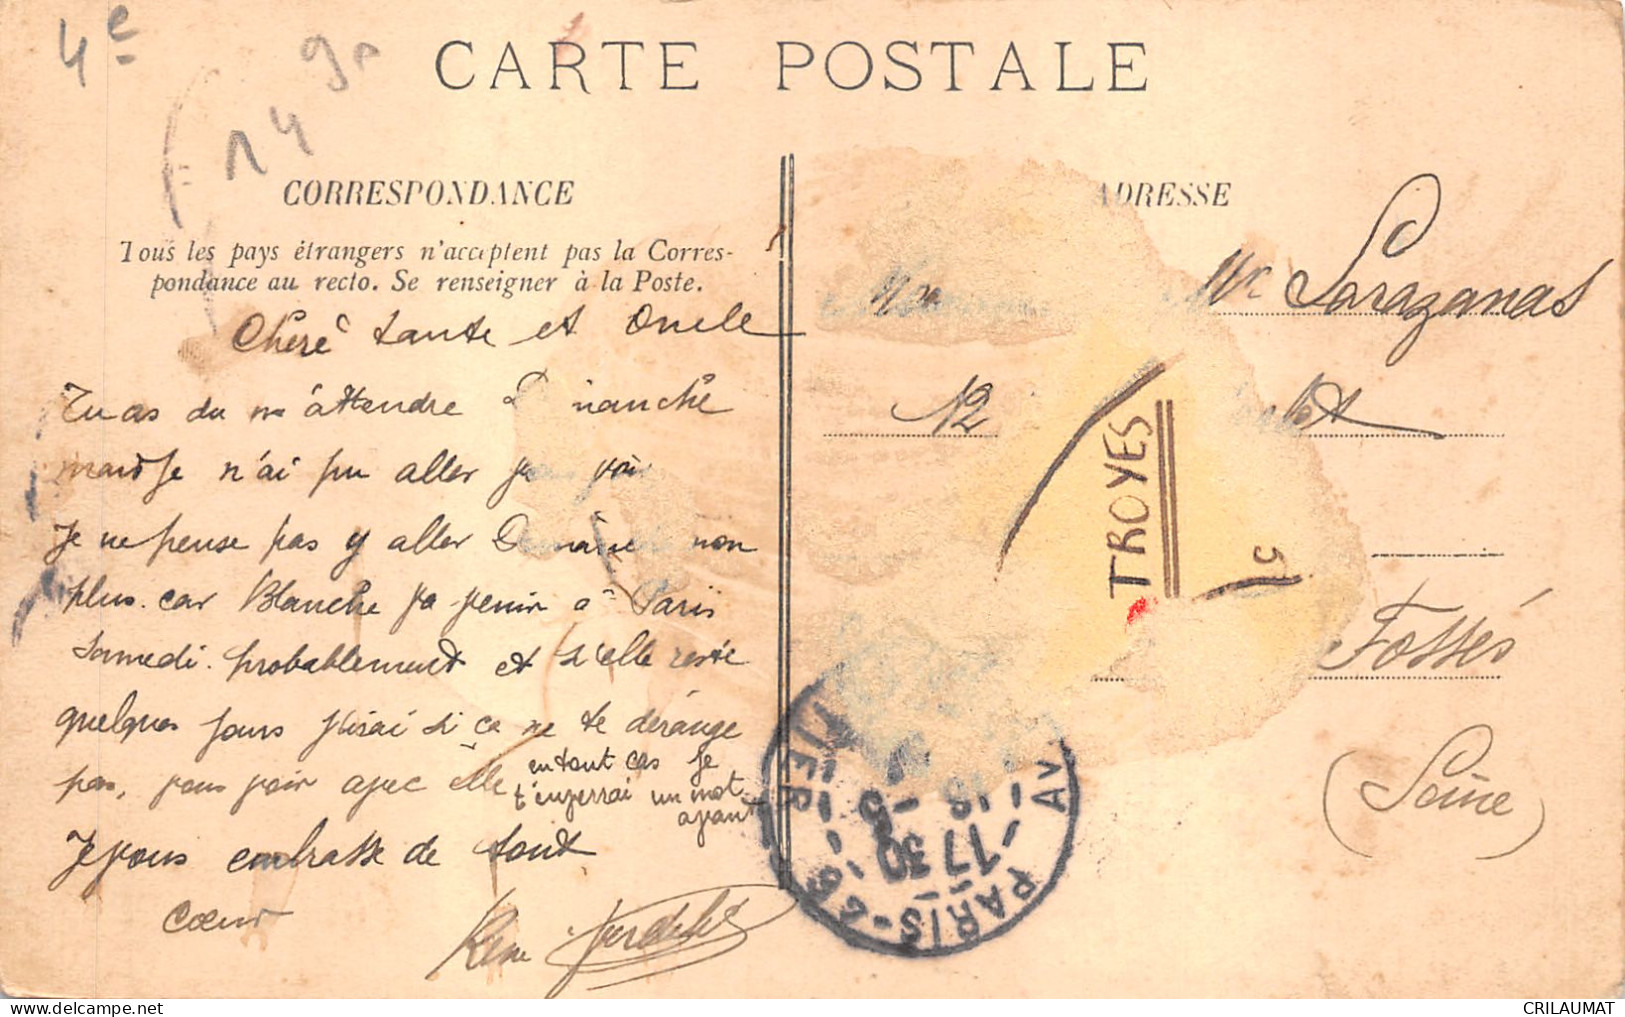 4e
14
CARTE POSTALE
CORRESPONDANCE
Tous les pays étrangers n'acceptent pas la Corres-
pondance au recto. Se renseigner à la Poste.
Chère tante et Oncle
Tu as du m'attendre Dimanche
mais je n'ai pu aller vous voir
Je ne pense pas y aller Dimanche non
plus. car Blanche va venir à Paris
Samedi. probablement et si elle reste
quelques jours j'irai si ça ne te dérange
pas, vous voir avec elle
en tout cas je
t'enverrai un mot
avant
Je vous embrasse de tout
Cœur
René
ADRESSE
Mr Sarazanas
12
TROYES
19
Fossés
(Seine)
PARIS-29
17 30
AV
CRILAUMAT